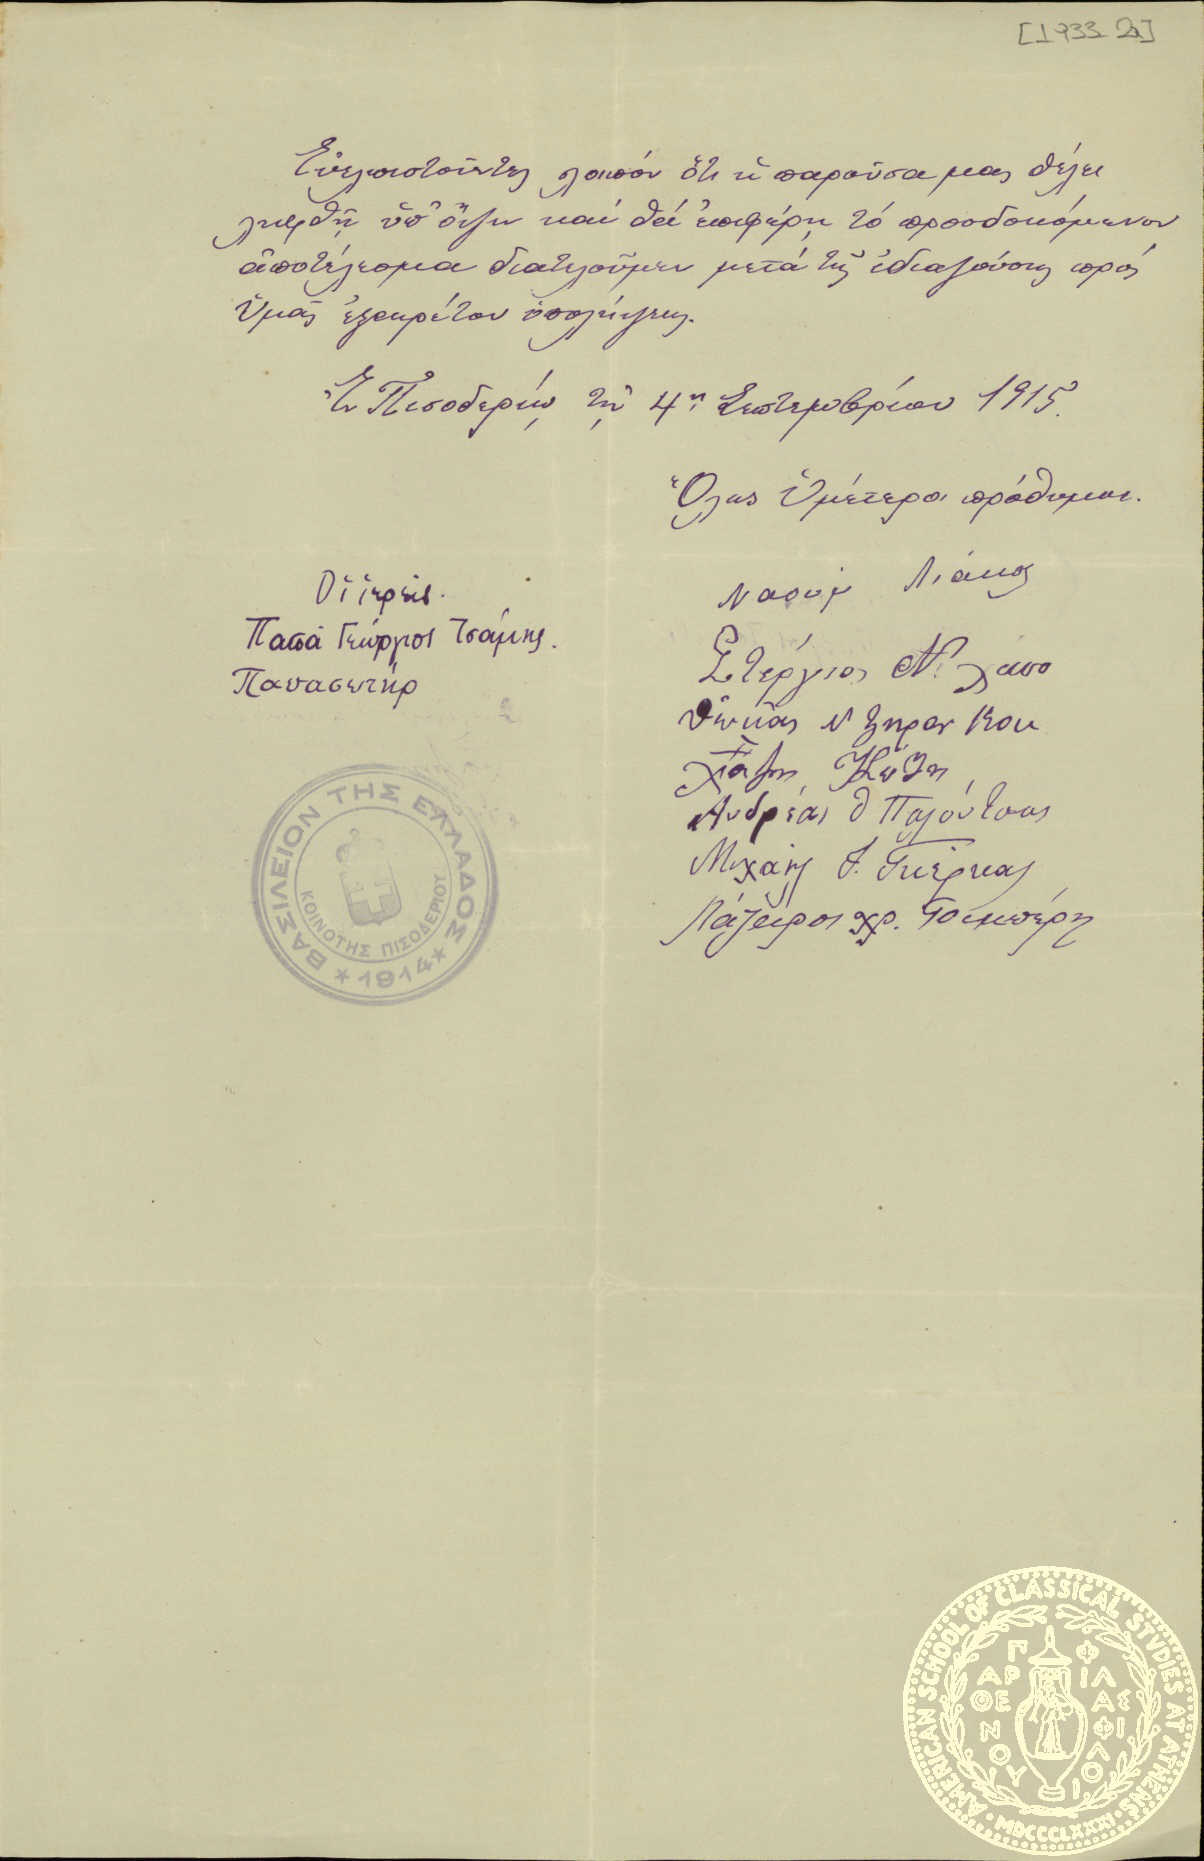 [1933 2α]
Εὐελπιστοῦντες λοιπόν ὅτι ἡ παροῦσα μας θέλει
ληφθῆ ὑπ' ὄψιν καί θά ἐπιφέρῃ τό προσδοκόμενον
ἀποτέλεσμα διατελοῦμεν μετά τῆς ἰδιαζούσης πρός
Ὑμᾶς ἐξαιρέτου ὑπολήψεως.
Ἐν Πισοδερίῳ τῇ 4ῃ Σεπτεμβρίου 1915.
Ὅλως Ὑμέτεροι πρόθυμοι.
Οἱ ἱερεῖς.
Παπᾶ Γεώργιος Τσάμης.
Παπασωτήρ
Ναούμ Λιάκος
Στέργιος Ν.
Κώζη
Ἀνδρέας Θ Παλούτσας
Μιχαήλ Γ. Γκέρκας
Λάζαρος χρ.
ΒΑΣΙΛΕΙΟΝ ΤΗΣ ΕΛΛΑΔΟΣ
ΚΟΙΝΟΤΗΣ ΠΙΣΟΔΕΡΙΟΥ
* 1914 *
AMERICAN SCHOOL OF CLASSICAL STVDIES AT ATHENS
ΠΑΡΘΕΝΟΥ
ΦΙΛΑΣ ΦΙΛΟΙ
MDCCCLXXXI